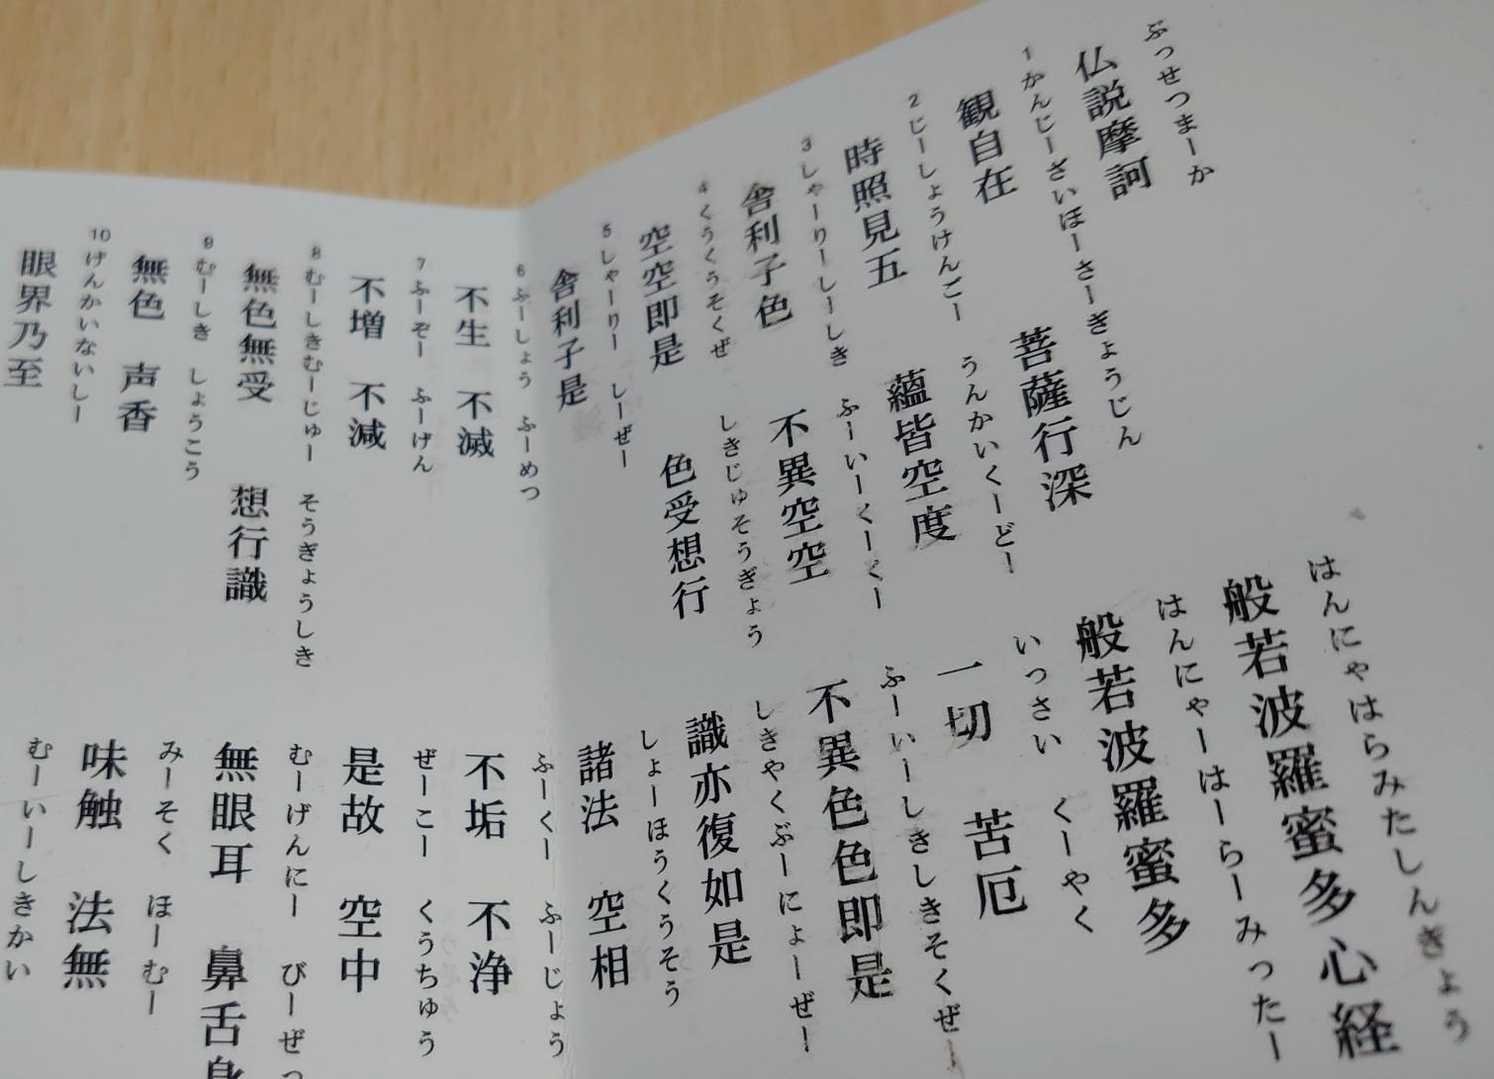 ぶっせつまーか はんにゃはらみたしんぎょう
仏説摩訶 般若波羅蜜多心経
1 かんじーざいほーさーぎょうじん はんにゃーはーらーみったー
観自在 菩薩行深 般若波羅蜜多
2 じーしょうけんごー うんかいくーどー いっさい くーやく
時照見五 蘊皆空度 一切 苦厄
3 しゃーりーしーしき ふーいーくーくー ふーいーしきしきそくぜー
舎利子色 不異空空 不異色色即是
4 くうくうそくぜ しきじゅそうぎょう しきやくぶーにょーぜー
空空即是 色受想行 識亦復如是
5 しゃーりー しーぜー しょーほうくうそう
舎利子是 諸法 空相
6 ふーしょう ふーめつ ふーくー ふーじょう
不生 不滅 不垢 不浄
7 ふーぞー ふーげん ぜーこー くうちゅう
不増 不減 是故 空中
8 むーしきむーじゅー そうぎょうしき むーげんにー びーぜっ
無色無受 想行識 無眼耳 鼻舌身
9 むーしき しょうこう みーそく ほーむー
無色 声香 味触 法無
10 げんかいないしー むーいーしきかい
眼界乃至